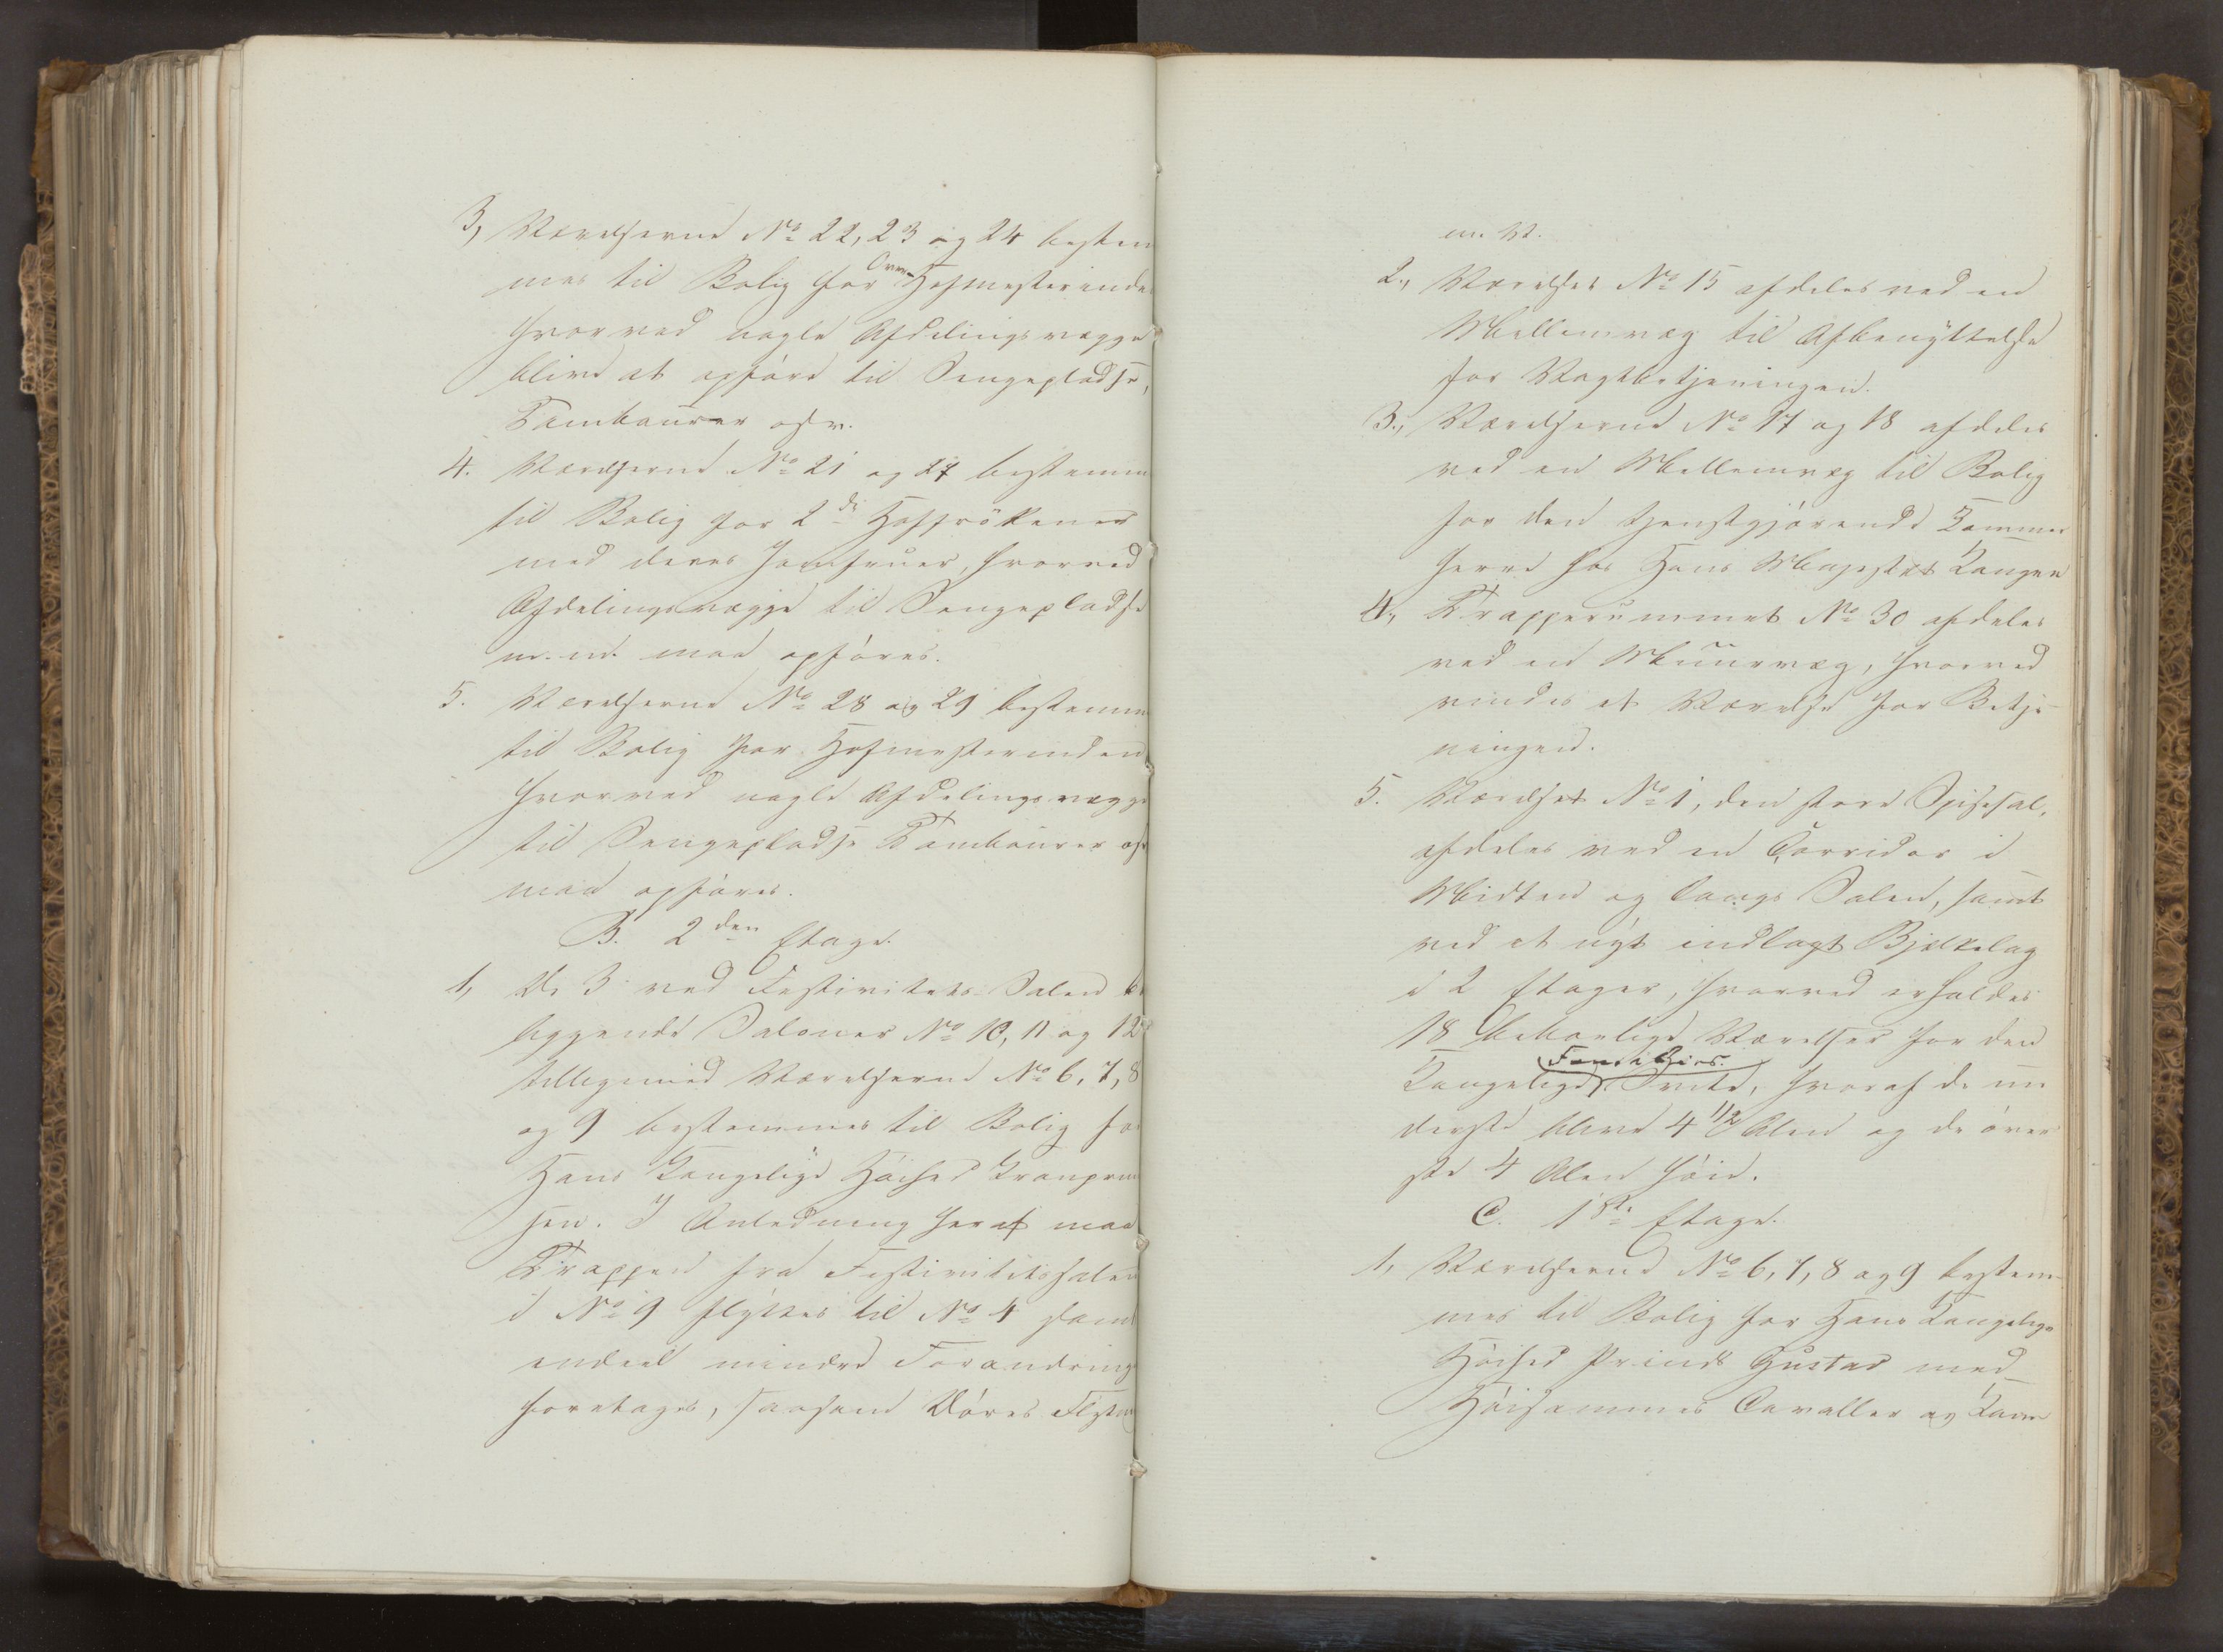 3, Værelserne No 22, 23 og 24 bestem
mes til Bolig for Over Hofmesterinden
hvorved nogle Afdelingsvægge
blive at opføre til Sengepladse,
Tambourer osv.
4. Værelserne No 21 og 27 bestemm
til Bolig for 2de Hoffrökener
med deres Jomfruer, hvorved
Afdelingsvægge til Sengepladse
m. m. maa opføres.
5. Værelserne No 28 og 29 bestemm
til Bolig for Hofmesterinden
hvorved nogle Afdelingsvægge
til Sengepladse Tambourer osv
maa opføres.
B. 2den Etage.
1, De 3 ved Festivitets Salen be
liggende Saloner No 10, 11 og 12
tilligemed Værelserne No 6, 7, 8
og 9 bestemmes til Bolig for
Hans Kongelige Höihed Kronprin
sen. I Anledning heraf maa
Trappen fra Festivitetssalen
i No 9 flyttes til No 4 samt
endeel mindre Forandring
foretages, saasom Döres Flytn
m. V.
2., Værelset No 15 afdeles ved en
Mellemvæg til Afbenyttelse
for Vagtbetjeningen.
3., Værelserne No 17 og 18 afdeles
ved en Mellemvæg til Bolig
for den tjenstgjørende Kammer
herre hos Hans Majestæt Kongen
4., Trapperummet No 30 afdeles
ved en Muurvæg, hvorved
vindes et Værelse for Betje
ningen.
5. Værelset No 1, den store Spisesal,
afdeles ved en Corridor i
Midten og langs Salen, samt
ved et nyt indlagt Bjelkelag
i 2 Etager, hvorved erholdes
18 beboelige Værelser for den
Kongelige Families Svite, hvoraf de un
derste blive 4 1/2 Alen og de över
ste 4 Alen höie.
C. 1ste Etage.
1, Værelserne No 6, 7, 8 og 9 bestem
mes til Bolig for Hans Kongelige
Höihed Prinds Gustav med
Höisammes Cavaller og Kam